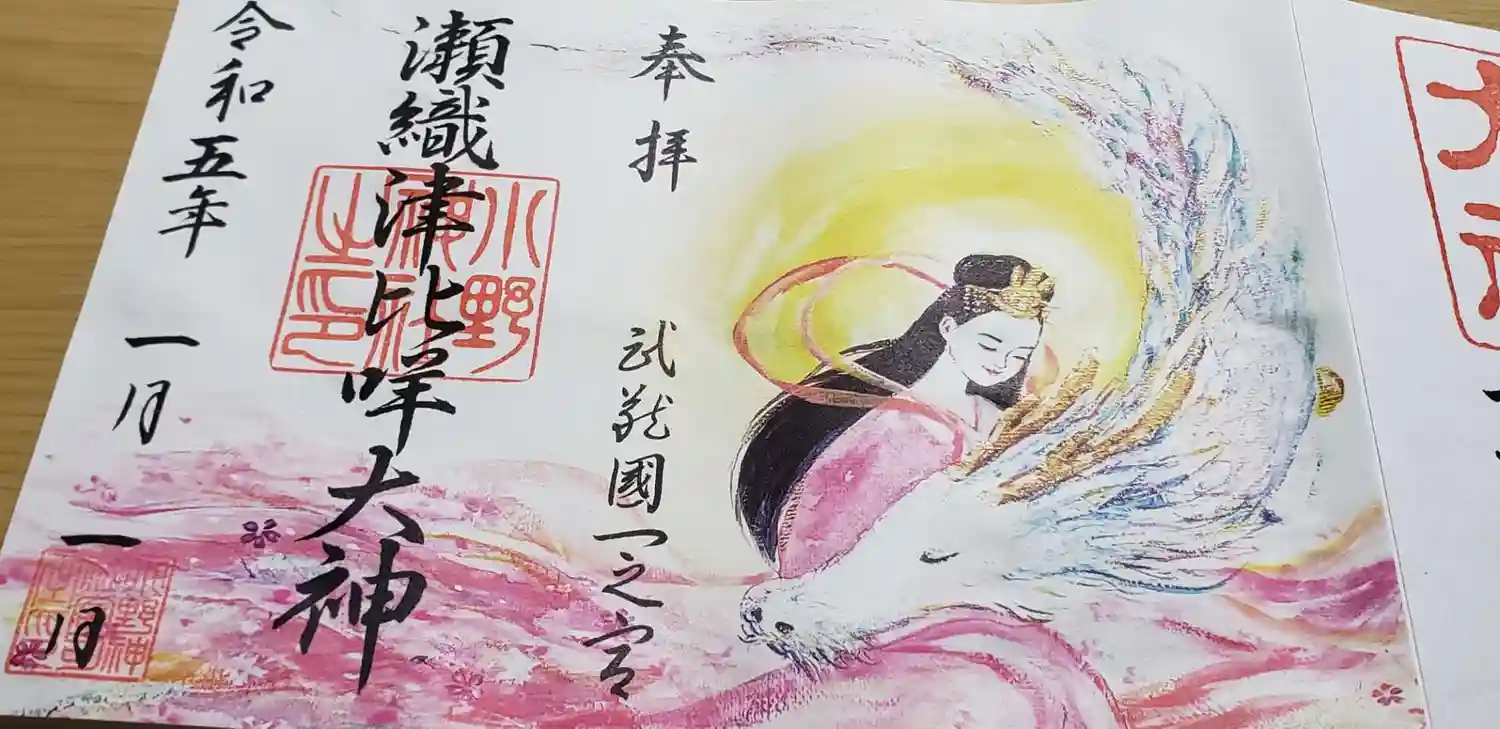 奉拝
武蔵國一之宮
瀬織津比咩大神
小野
神社
之印
令和五年
一月
一日